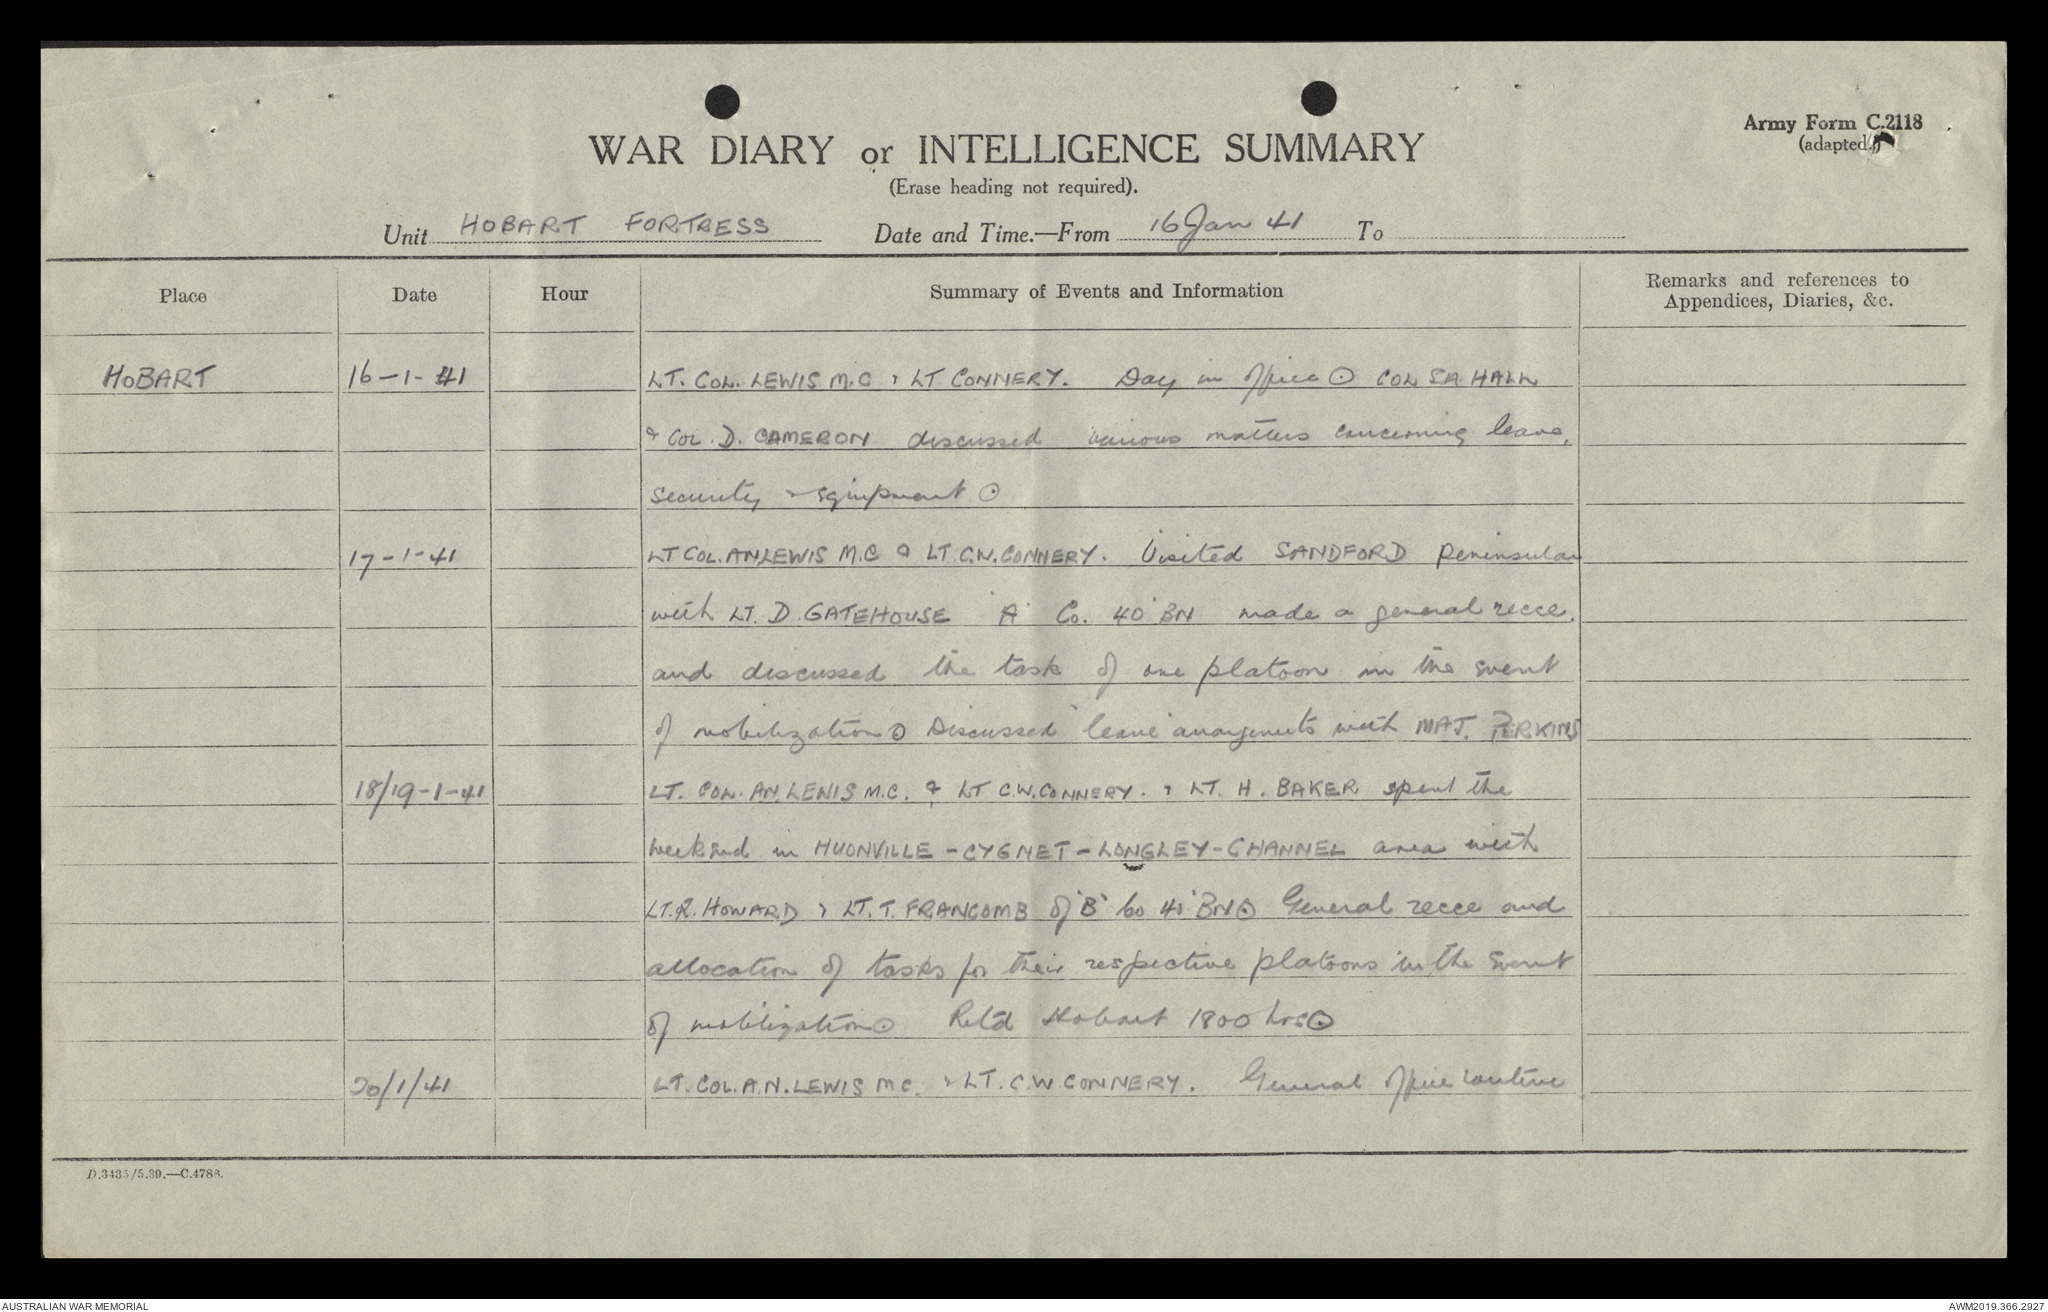 Army Form C.2118
(adapted.)
WAR DIARY or INTELLIGENCE SUMMARY
(Erase heading not required).
Unit HOBART FORTRESS Date and Time.—From 16 Jan 41 To
Place Date Hour Summary of Events and Information Remarks and references to
Appendices, Diaries, &c.
HOBART 16-1-41 LT. COL. LEWIS M.C & LT CONNERY. Day in office ⊙ COL S.A. HALL
& COL. D. CAMERON discussed various matters concerning leave,
security & equipment ⊙
17-1-41 LT COL. A.N. LEWIS M.C & LT. C.W. CONNERY. Visited SANDFORD peninsular
with LT. D. GATEHOUSE 'A' Co. 40 BN made a general recce.
and discussed the task of one platoon in the event
of mobilization ⊙ Discussed leave arangements with MAJ. PERKINS
18/19-1-41 LT. COL. A.N. LEWIS M.C. & LT C.W. CONNERY. & LT. H. BAKER spent the
weekend in HUONVILLE - CYGNET - LONGLEY - CHANNEL area with
LT. R. HOWARD & LT. T. FRANCOMB of 'B' Co 40 BN ⊙ General recce and
allocation of tasks for their respective platoons in the event
of mobilization ⊙ Retd Hobart 1800 hrs ⊙
20/1/41 LT. COL. A.N. LEWIS M.C. & LT. C.W CONNERY. General office routine
D.3435/5.39.—C.4788.
AUSTRALIAN WAR MEMORIAL AWM2019.366.2927